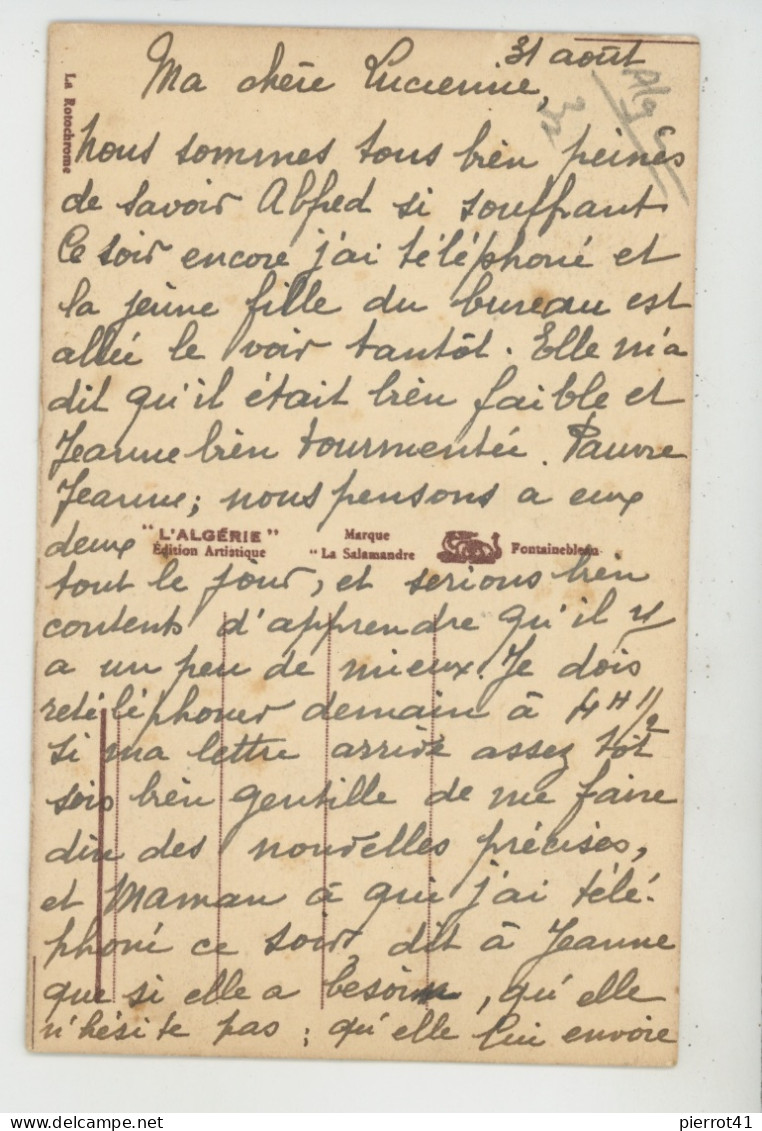 31 août
Ma chère Lucienne,
La Rotochrome
Nous sommes tous bien peinés
de savoir Alfred si souffrant
Ce soir encore j'ai téléphoné et
la jeune fille du bureau est
allée le voir tantôt. Elle m'a
dit qu'il était bien faible et
Jeanne bien tourmentée. Pauvre
Jeanne; nous pensons a eux
deux
"L'ALGÉRIE"
Édition Artistique
Marque
"La Salamandre
Fontainebleau
tout le jour, et serions bien
contents d'apprendre qu'il y
a un peu de mieux. Je dois
retéléphoner demain à 4H 1/2
Si ma lettre arrive assez tôt
sois bien gentille de me faire
dire des nouvelles précises,
et Maman à qui j'ai télé-
phoné ce soir, dit à Jeanne
que si elle a besoin, qu'elle
n'hésite pas; qu'elle lui envoie
pierrot41